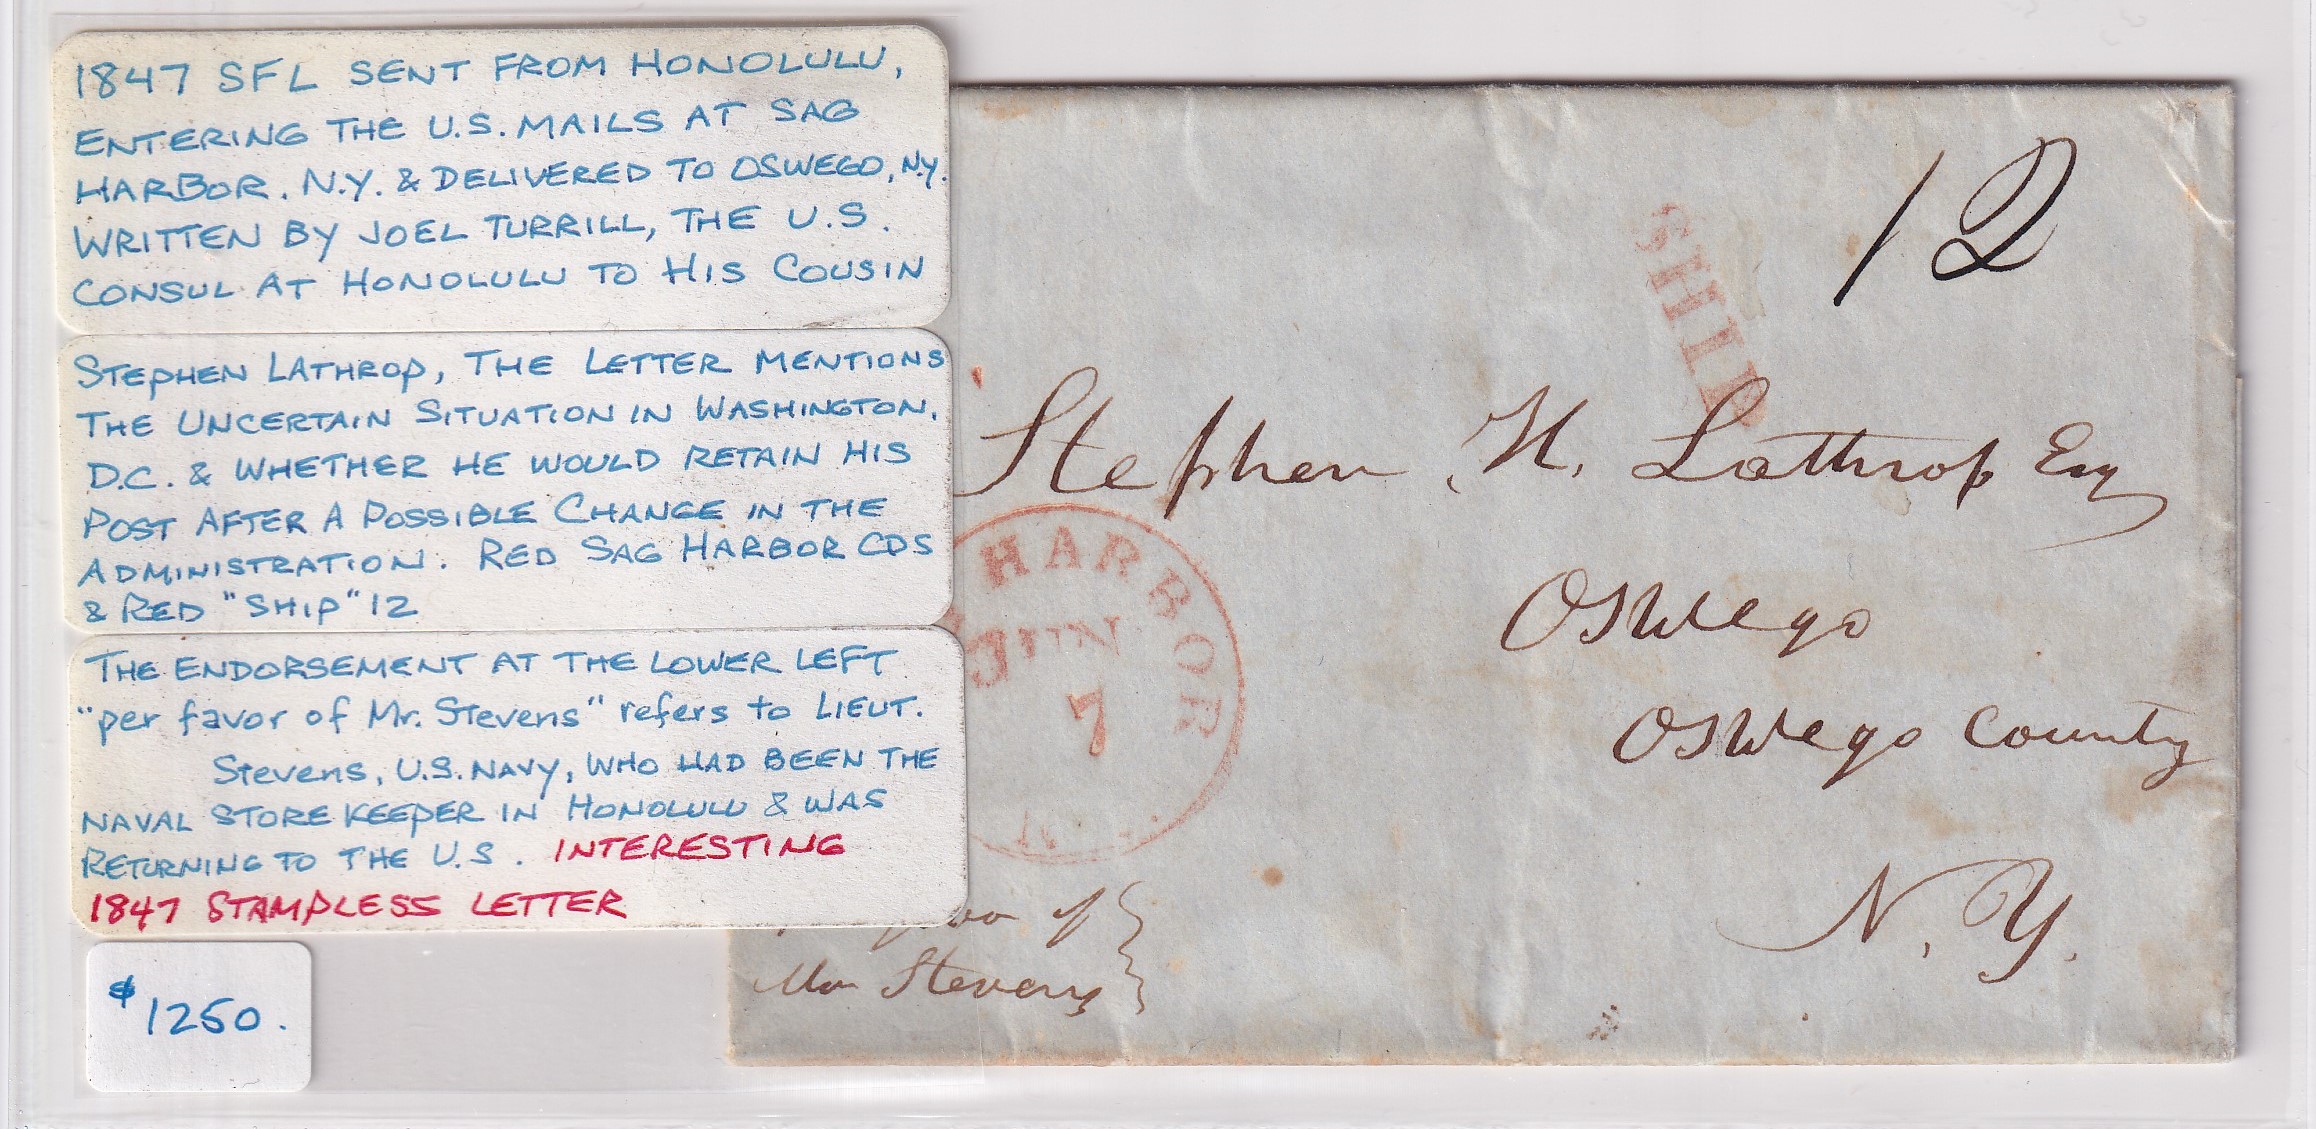 1847 SFL SENT FROM HONOLULU,
ENTERING THE U.S. MAILS AT SAG
HARBOR. N.Y. & DELIVERED TO OSWEGO, N.Y.
WRITTEN BY JOEL TURRILL, THE U.S.
CONSUL AT HONOLULU TO HIS COUSIN
STEPHEN LATHROP, THE LETTER MENTIONS
THE UNCERTAIN SITUATION IN WASHINGTON,
D.C. & WHETHER HE WOULD RETAIN HIS
POST AFTER A POSSIBLE CHANGE IN THE
ADMINISTRATION. RED SAG HARBOR CDS
& RED "SHIP" 12
THE ENDORSEMENT AT THE LOWER LEFT
"per favor of Mr. Stevens" refers to LIEUT.
Stevens, U.S. NAVY, WHO HAD BEEN THE
NAVAL STORE KEEPER IN HONOLULU & WAS
RETURNING TO THE U.S. INTERESTING
1847 STAMPLESS LETTER
$1250.
12
SHIP
Stephen H. Lathrop Esq
Oswego
Oswego County
N. Y.
HARBOR
JUN
7
of
Stevens